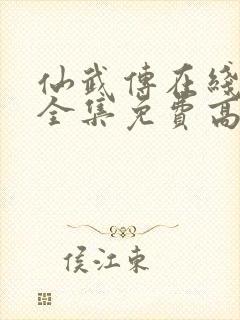 仙武傳在綫
全集免費高
侯江東